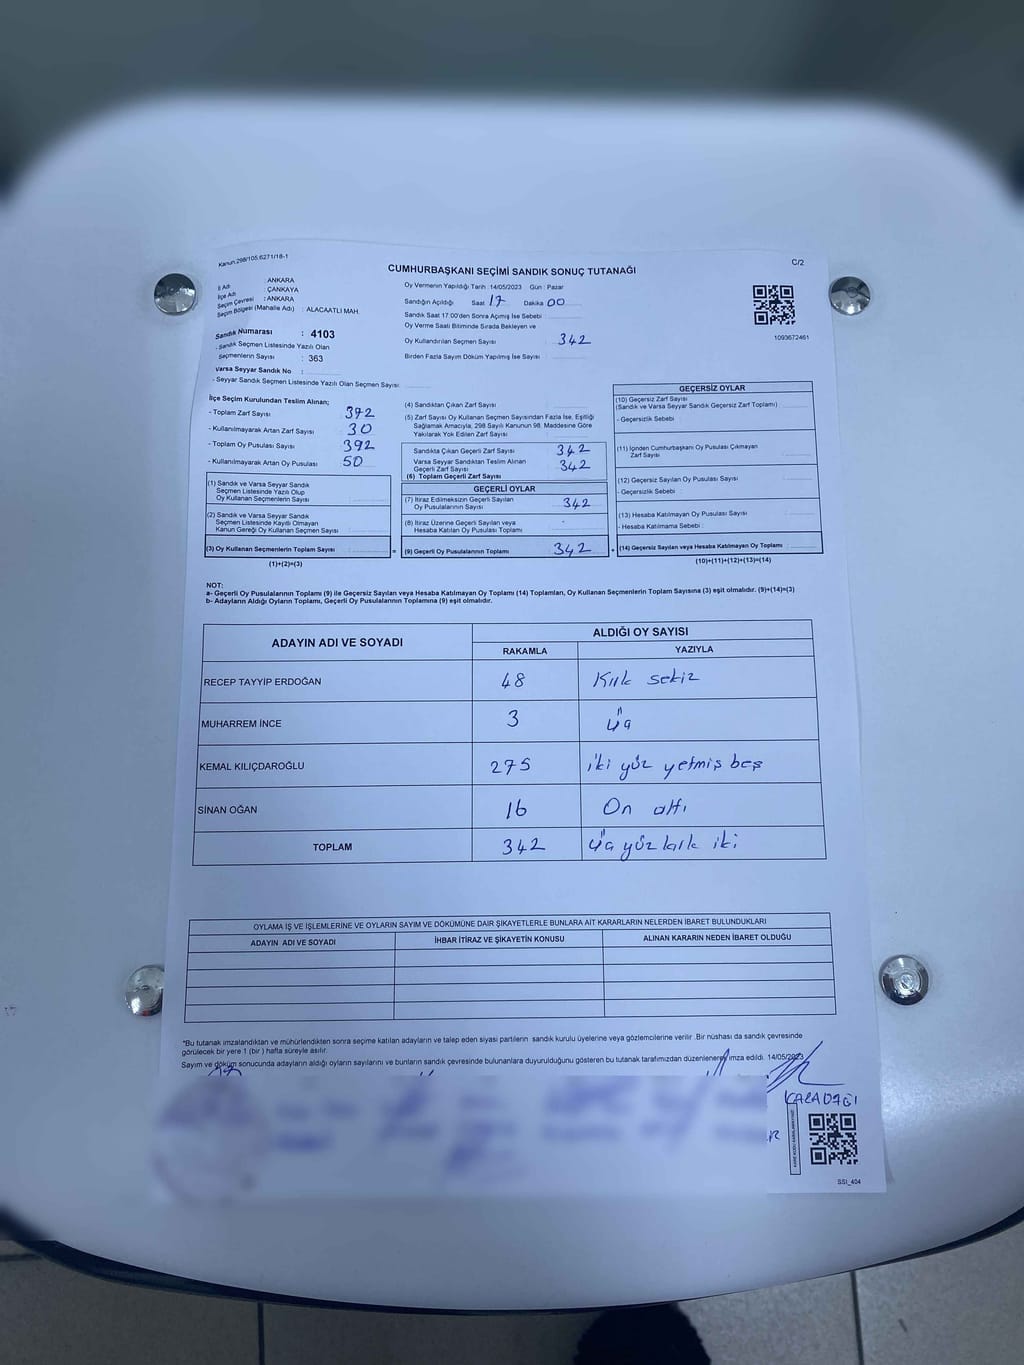 Kanun:298/105,6271/18-1
C/2
CUMHURBAŞKANI SEÇİMİ SANDIK SONUÇ TUTANAĞI
İl Adı : ANKARA
İlçe Adı : ÇANKAYA
Seçim Çevresi : ANKARA
Seçim Bölgesi (Mahalle Adı) : ALACAATLI MAH.
Sandık Numarası : 4103
- Sandık Seçmen Listesinde Yazılı Olan
Seçmenlerin Sayısı : 363
Varsa Seyyar Sandık No :
- Seyyar Sandık Seçmen Listesinde Yazılı Olan Seçmen Sayısı:
Oy Vermenin Yapıldığı Tarih : 14/05/2023 Gün : Pazar
Sandığın Açıldığı Saat 17 Dakika 00
Sandık Saat 17:00'den Sonra Açımış İse Sebebi :
Oy Verme Saati Bitiminde Sırada Bekleyen ve
Oy Kullandırılan Seçmen Sayısı : 342
Birden Fazla Sayım Döküm Yapılmış İse Sayısı :
1093672461
İlçe Seçim Kurulundan Teslim Alınan;
- Toplam Zarf Sayısı 372
- Kullanılmayarak Artan Zarf Sayısı 30
- Toplam Oy Pusulası Sayısı 392
- Kullanılmayarak Artan Oy Pusulası 50
(1) Sandık ve Varsa Seyyar Sandık
Seçmen Listesinde Yazılı Olup
Oy Kullanan Seçmenlerin Sayısı
(2) Sandık ve Varsa Seyyar Sandık
Seçmen Listesinde Kayıtlı Olmayan
Kanun Gereği Oy Kullanan Seçmen Sayısı
(3) Oy Kullanan Seçmenlerin Toplam Sayısı =
(1)+(2)=(3)
(4) Sandıktan Çıkan Zarf Sayısı
(5) Zarf Sayısı Oy Kullanan Seçmen Sayısından Fazla İse, Eşitliği
Sağlamak Amacıyla, 298 Sayılı Kanunun 98. Maddesine Göre
Yakılarak Yok Edilen Zarf Sayısı
Sandıkta Çıkan Geçerli Zarf Sayısı 342
Varsa Seyyar Sandıktan Teslim Alınan
Geçerli Zarf Sayısı 342
(6) Toplam Geçerli Zarf Sayısı
GEÇERLİ OYLAR
(7) İtiraz Edilmeksizin Geçerli Sayılan
Oy Pusulalarının Sayısı 342
(8) İtiraz Üzerine Geçerli Sayılan veya
Hesaba Katılan Oy Pusulası Toplamı
(9) Geçerli Oy Pusulalarının Toplamı 342 +
GEÇERSİZ OYLAR
(10) Geçersiz Zarf Sayısı
(Sandık ve Varsa Seyyar Sandık Geçersiz Zarf Toplamı)
- Geçersizlik Sebebi :
(11) İçinden Cumhurbaşkanı Oy Pusulası Çıkmayan
Zarf Sayısı
(12) Geçersiz Sayılan Oy Pusulası Sayısı
- Geçersizlik Sebebi :
(13) Hesaba Katılmayan Oy Pusulası Sayısı
- Hesaba Katılmama Sebebi :
(14) Geçersiz Sayılan veya Hesaba Katılmayan Oy Toplamı
(10)+(11)+(12)+(13)=(14)
NOT:
a- Geçerli Oy Pusulalarının Toplamı (9) ile Geçersiz Sayılan veya Hesaba Katılmayan Oy Toplamı (14) Toplamları, Oy Kullanan Seçmenlerin Toplam Sayısına (3) eşit olmalıdır. (9)+(14)=(3)
b- Adayların Aldığı Oyların Toplamı, Geçerli Oy Pusulalarının Toplamına (9) eşit olmalıdır.
ADAYIN ADI VE SOYADI ALDIĞI OY SAYISI
RAKAMLA YAZIYLA
RECEP TAYYİP ERDOĞAN 48 Kırk sekiz
MUHARREM İNCE 3 Üç
KEMAL KILIÇDAROĞLU 275 iki yüz yetmiş beş
SİNAN OĞAN 16 On altı
TOPLAM 342 Üç yüz kırk iki
OYLAMA İŞ VE İŞLEMLERİNE VE OYLARIN SAYIM VE DÖKÜMÜNE DAİR ŞİKAYETLERLE BUNLARA AİT KARARLARIN NELERDEN İBARET BULUNDUKLARI
ADAYIN ADI VE SOYADI İHBAR İTİRAZ VE ŞİKAYETİN KONUSU ALINAN KARARIN NEDEN İBARET OLDUĞU
*Bu tutanak imzalandıktan ve mühürlendikten sonra seçime katılan adayların ve talep eden siyasi partilerin sandık kurulu üyelerine veya gözlemcilerine verilir .Bir nüshası da sandık çevresinde
görülecek bir yere 1 (bir ) hafta süreyle asılır.
Sayım ve döküm sonucunda adayların aldığı oyların sayılarını ve bunların sandık çevresinde bulunanlara duyurulduğunu gösteren bu tutanak tarafımızdan düzenlenerek imza edildi. 14/05/2023
KARADAĞI
SSI_404